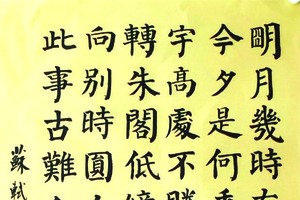 明月幾時有
今夕是何
宇高處不勝
轉朱閣低綺
向别時圓
此事古難
蘇軾